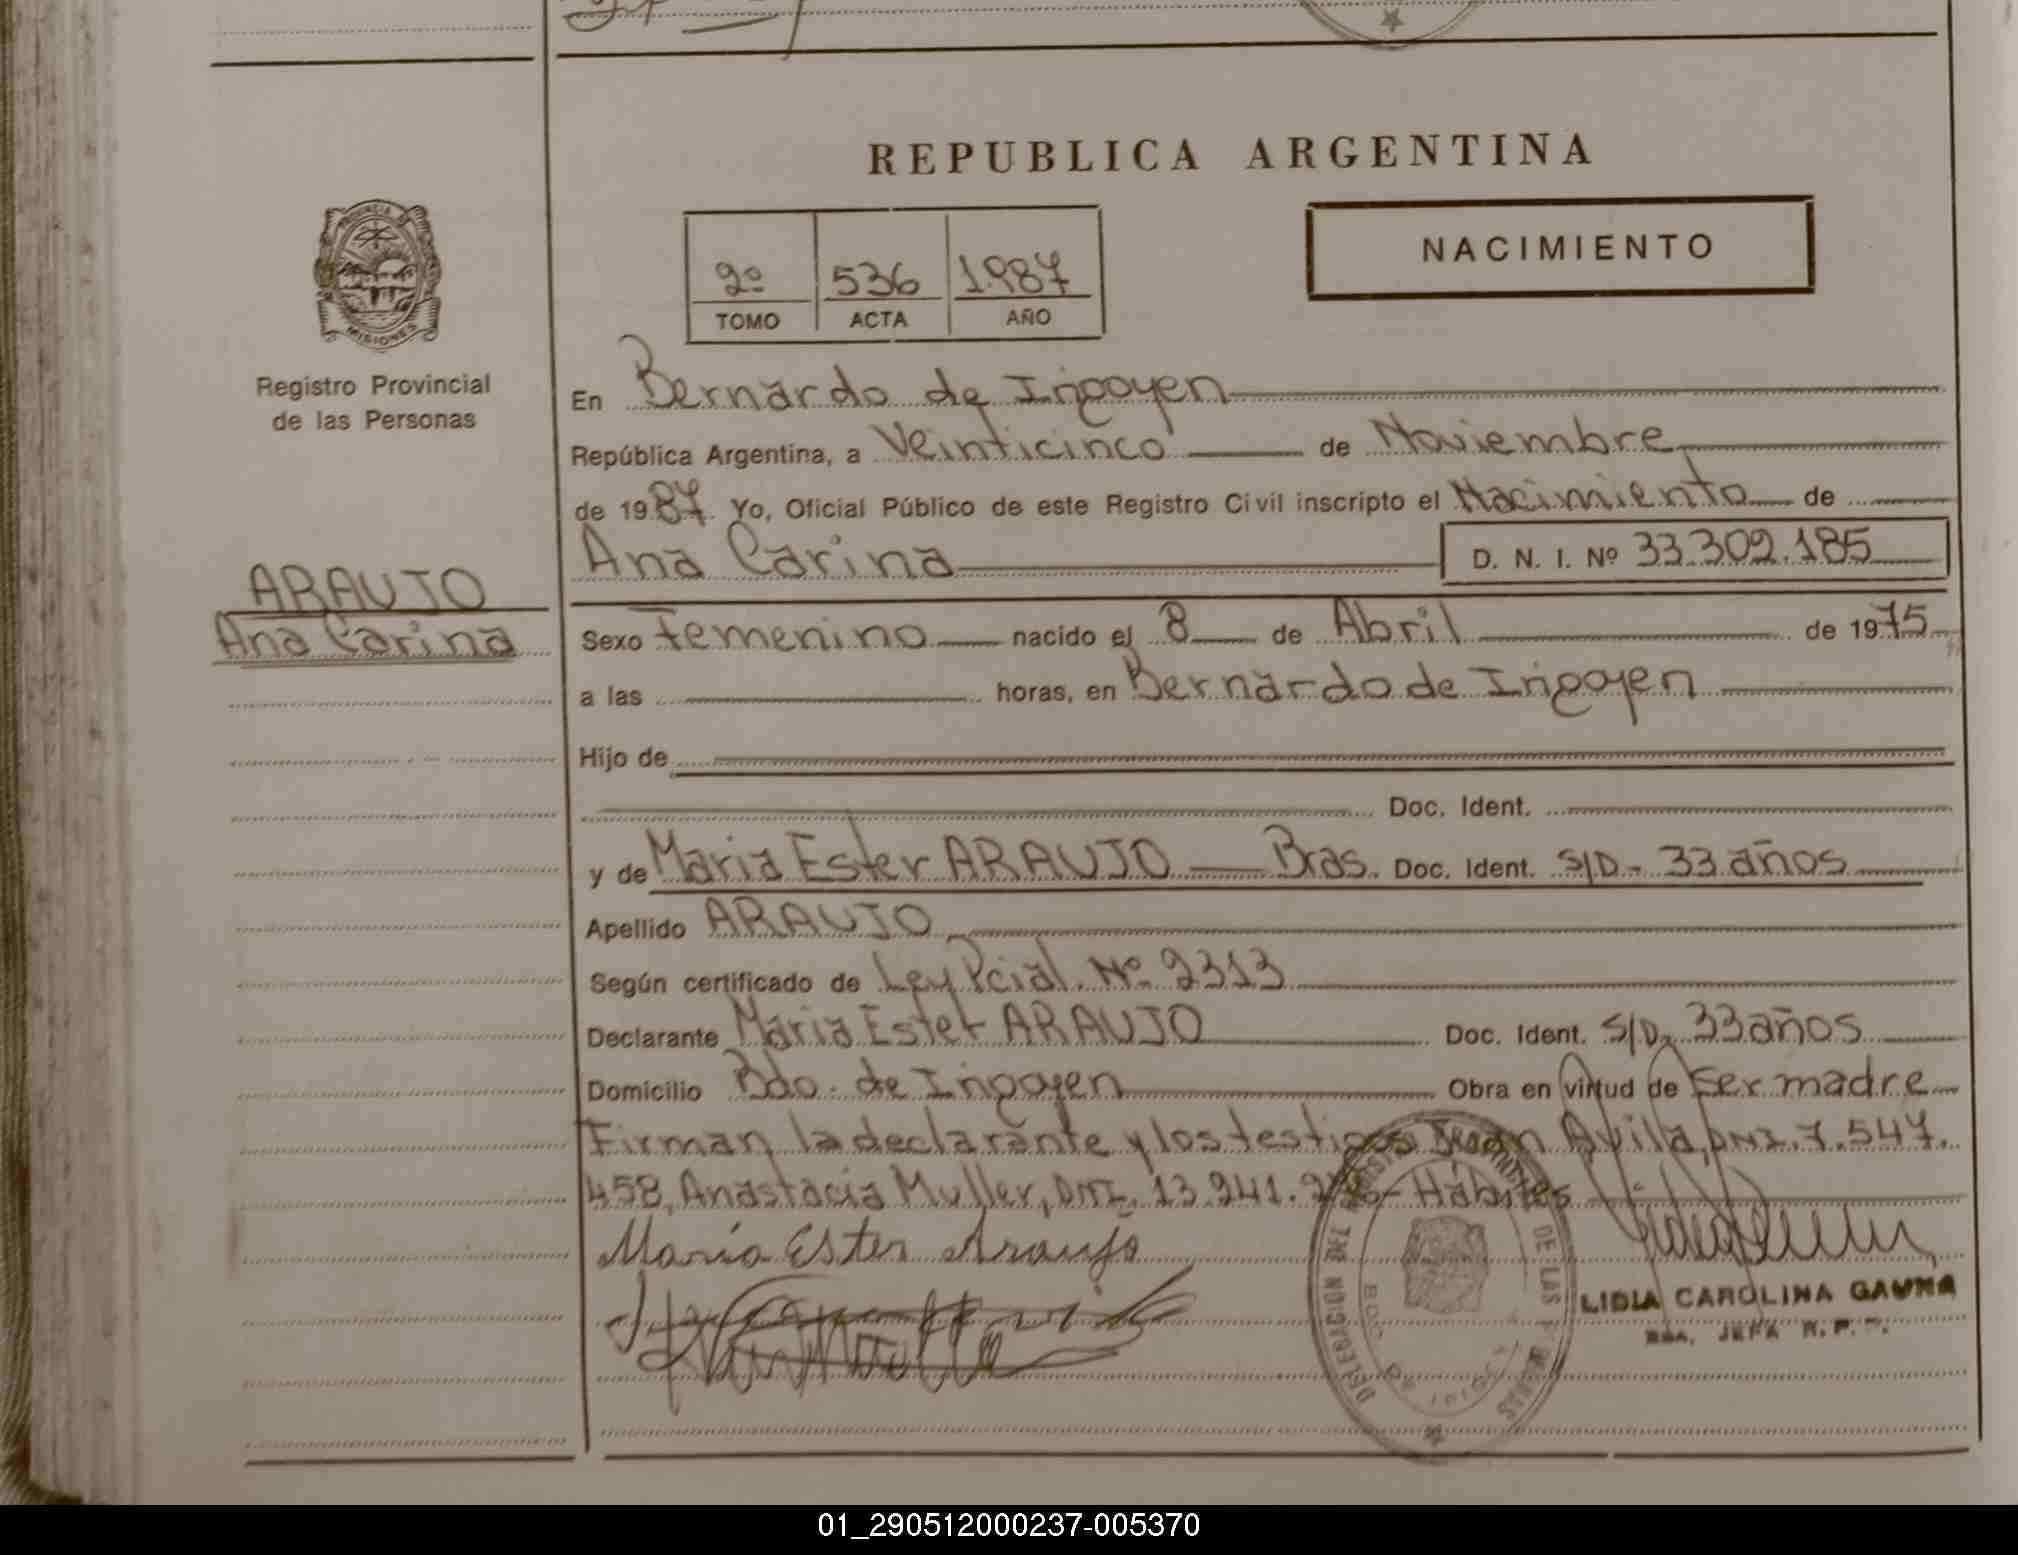 REPUBLICA ARGENTINA
NACIMIENTO
2º 536 1.987
TOMO ACTA AÑO
PROVINCIA DE
MISIONES
Registro Provincial
de las Personas
ARAUJO
Ana Carina
En Bernardo de Irigoyen
República Argentina, a Veinticinco de Noviembre
de 1987. Yo, Oficial Público de este Registro Civil inscripto el Nacimiento de
Ana Carina D. N. I. Nº 33.302.185
Sexo Femenino nacido el 8 de Abril de 1975
a las horas, en Bernardo de Irigoyen
Hijo de
Doc. Ident.
y de Maria Ester ARAUJO Bras. Doc. Ident. S/D- 33 años
Apellido ARAUJO
Según certificado de Ley Pcial. Nº 2313
Declarante Maria Ester ARAUJO Doc. Ident. S/D- 33 años
Domicilio Bdo. de Irigoyen Obra en virtud de ser madre
Firman la declarante y los testigos Avila, DNI. 7.547.
458, Anastacia Muller, DNI. 13.941. Hábiles
María Ester Araujo
DELEGACION DEL DE LAS
LIDIA CAROLINA GAUNA
JEFA R. P. P.
01_290512000237-005370